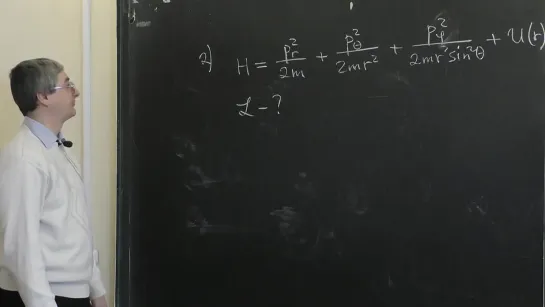 2) H = p_r²/2m + p_θ²/2mr² + p_φ²/2mr²sin²θ + U(r)
ℒ - ?